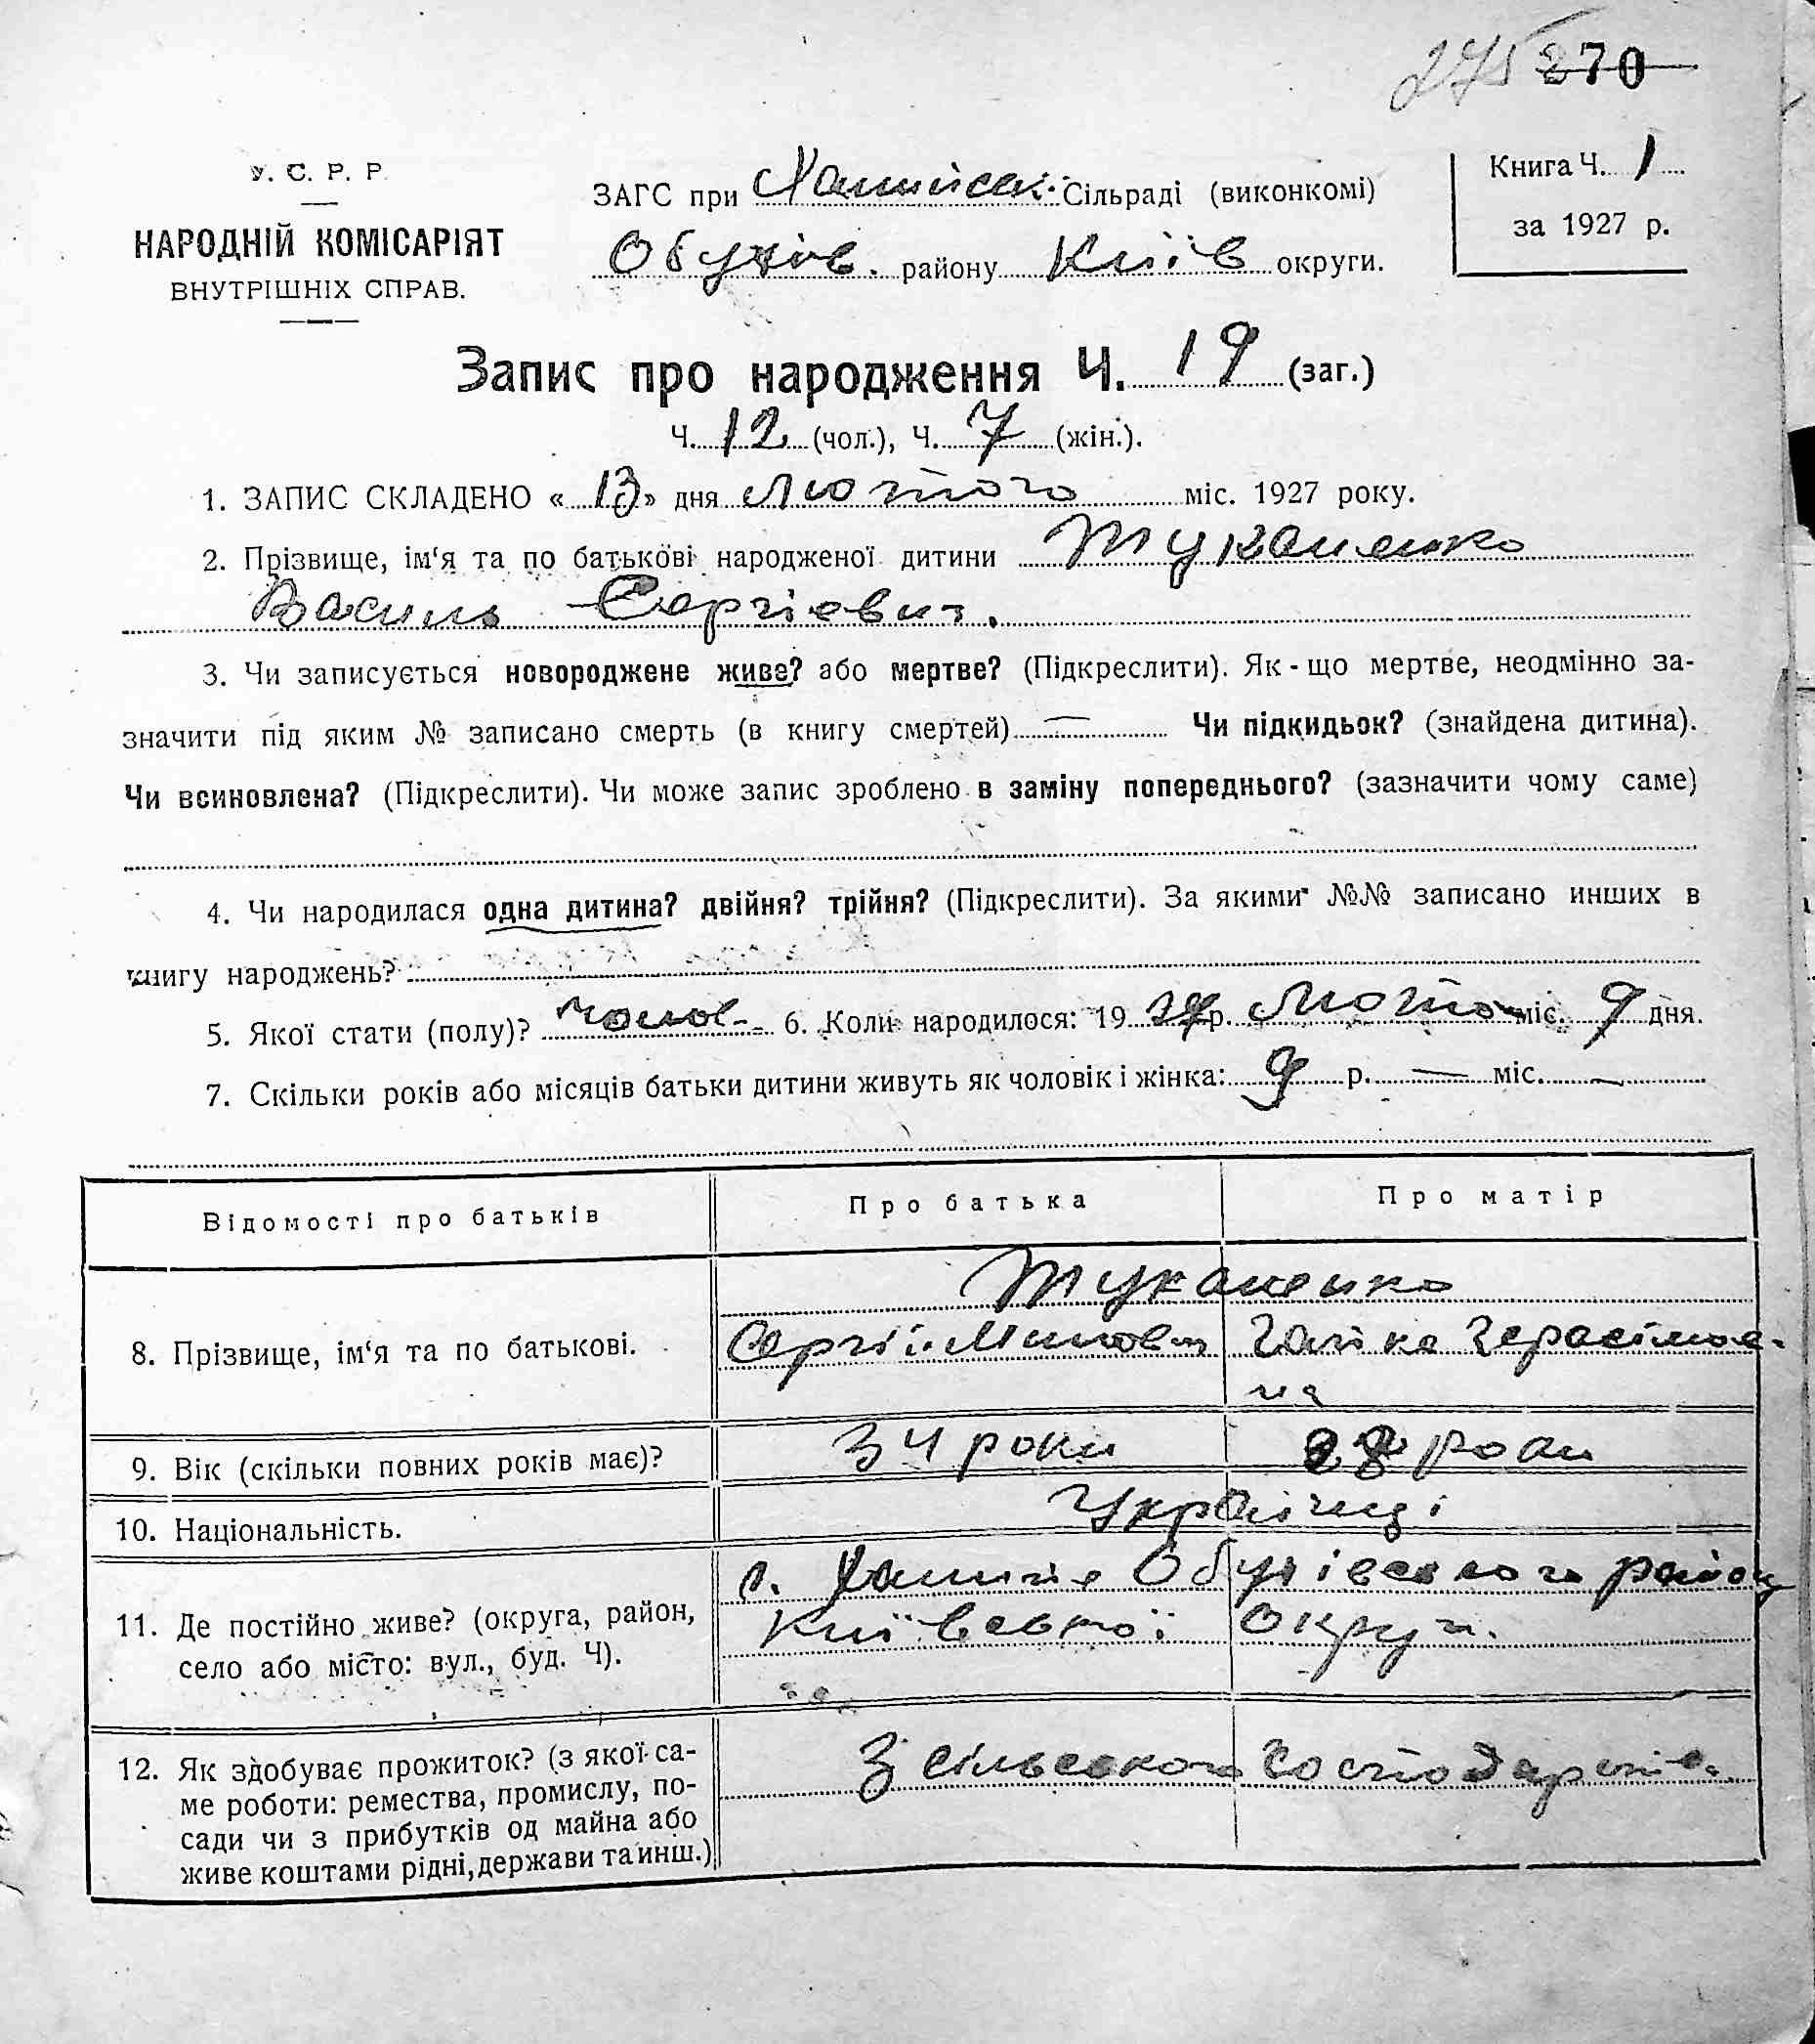 275 270
У. С. Р. Р.
НАРОДНІЙ КОМІСАРІЯТ
ВНУТРІШНІХ СПРАВ.
ЗАГС при Сільраді (виконкомі)
Обухів. району Київ округи.
Книга Ч. 1
за 1927 р.
Запис про народження Ч. 19 (заг.)
Ч. 12 (чол.), Ч. 7 (жін.).
1. ЗАПИС СКЛАДЕНО «13» дня Лютого міс. 1927 року.
2. Прізвище, ім‘я та по батькові народженої дитини Тукаленко
Василь Сергієвич.
3. Чи записується новороджене живе? або мертве? (Підкреслити). Як-що мертве, неодмінно за-
значити під яким № записано смерть (в книгу смертей) — Чи підкидьок? (знайдена дитина).
Чи всиновлена? (Підкреслити). Чи може запис зроблено в заміну попереднього? (зазначити чому саме)
4. Чи народилася одна дитина? двійня? трійня? (Підкреслити). За якими №№ записано инших в
книгу народжень?
5. Якої стати (полу)? чолов- 6. Коли народилося: 19 27 р. Лютого міс. 9 дня.
7. Скільки років або місяців батьки дитини живуть як чоловік і жінка: 9 р. — міс. —
Відомості про батьків
Про батька
Про матір
Тукаленко
8. Прізвище, ім‘я та по батькові.
Сергій Милович
Герасімов-
на
9. Вік (скільки повних років має)?
34 роки
28 роки
10. Національність.
Українці
11. Де постійно живе? (округа, район,
село або місто: вул., буд. Ч).
с. Обухівського району
Київської Округи.
12. Як здобуває прожиток? (з якої са-
ме роботи: ремества, промислу, по-
сади чи з прибутків од майна або
живе коштами рідні, держави та инш.)
З сільського господарств.